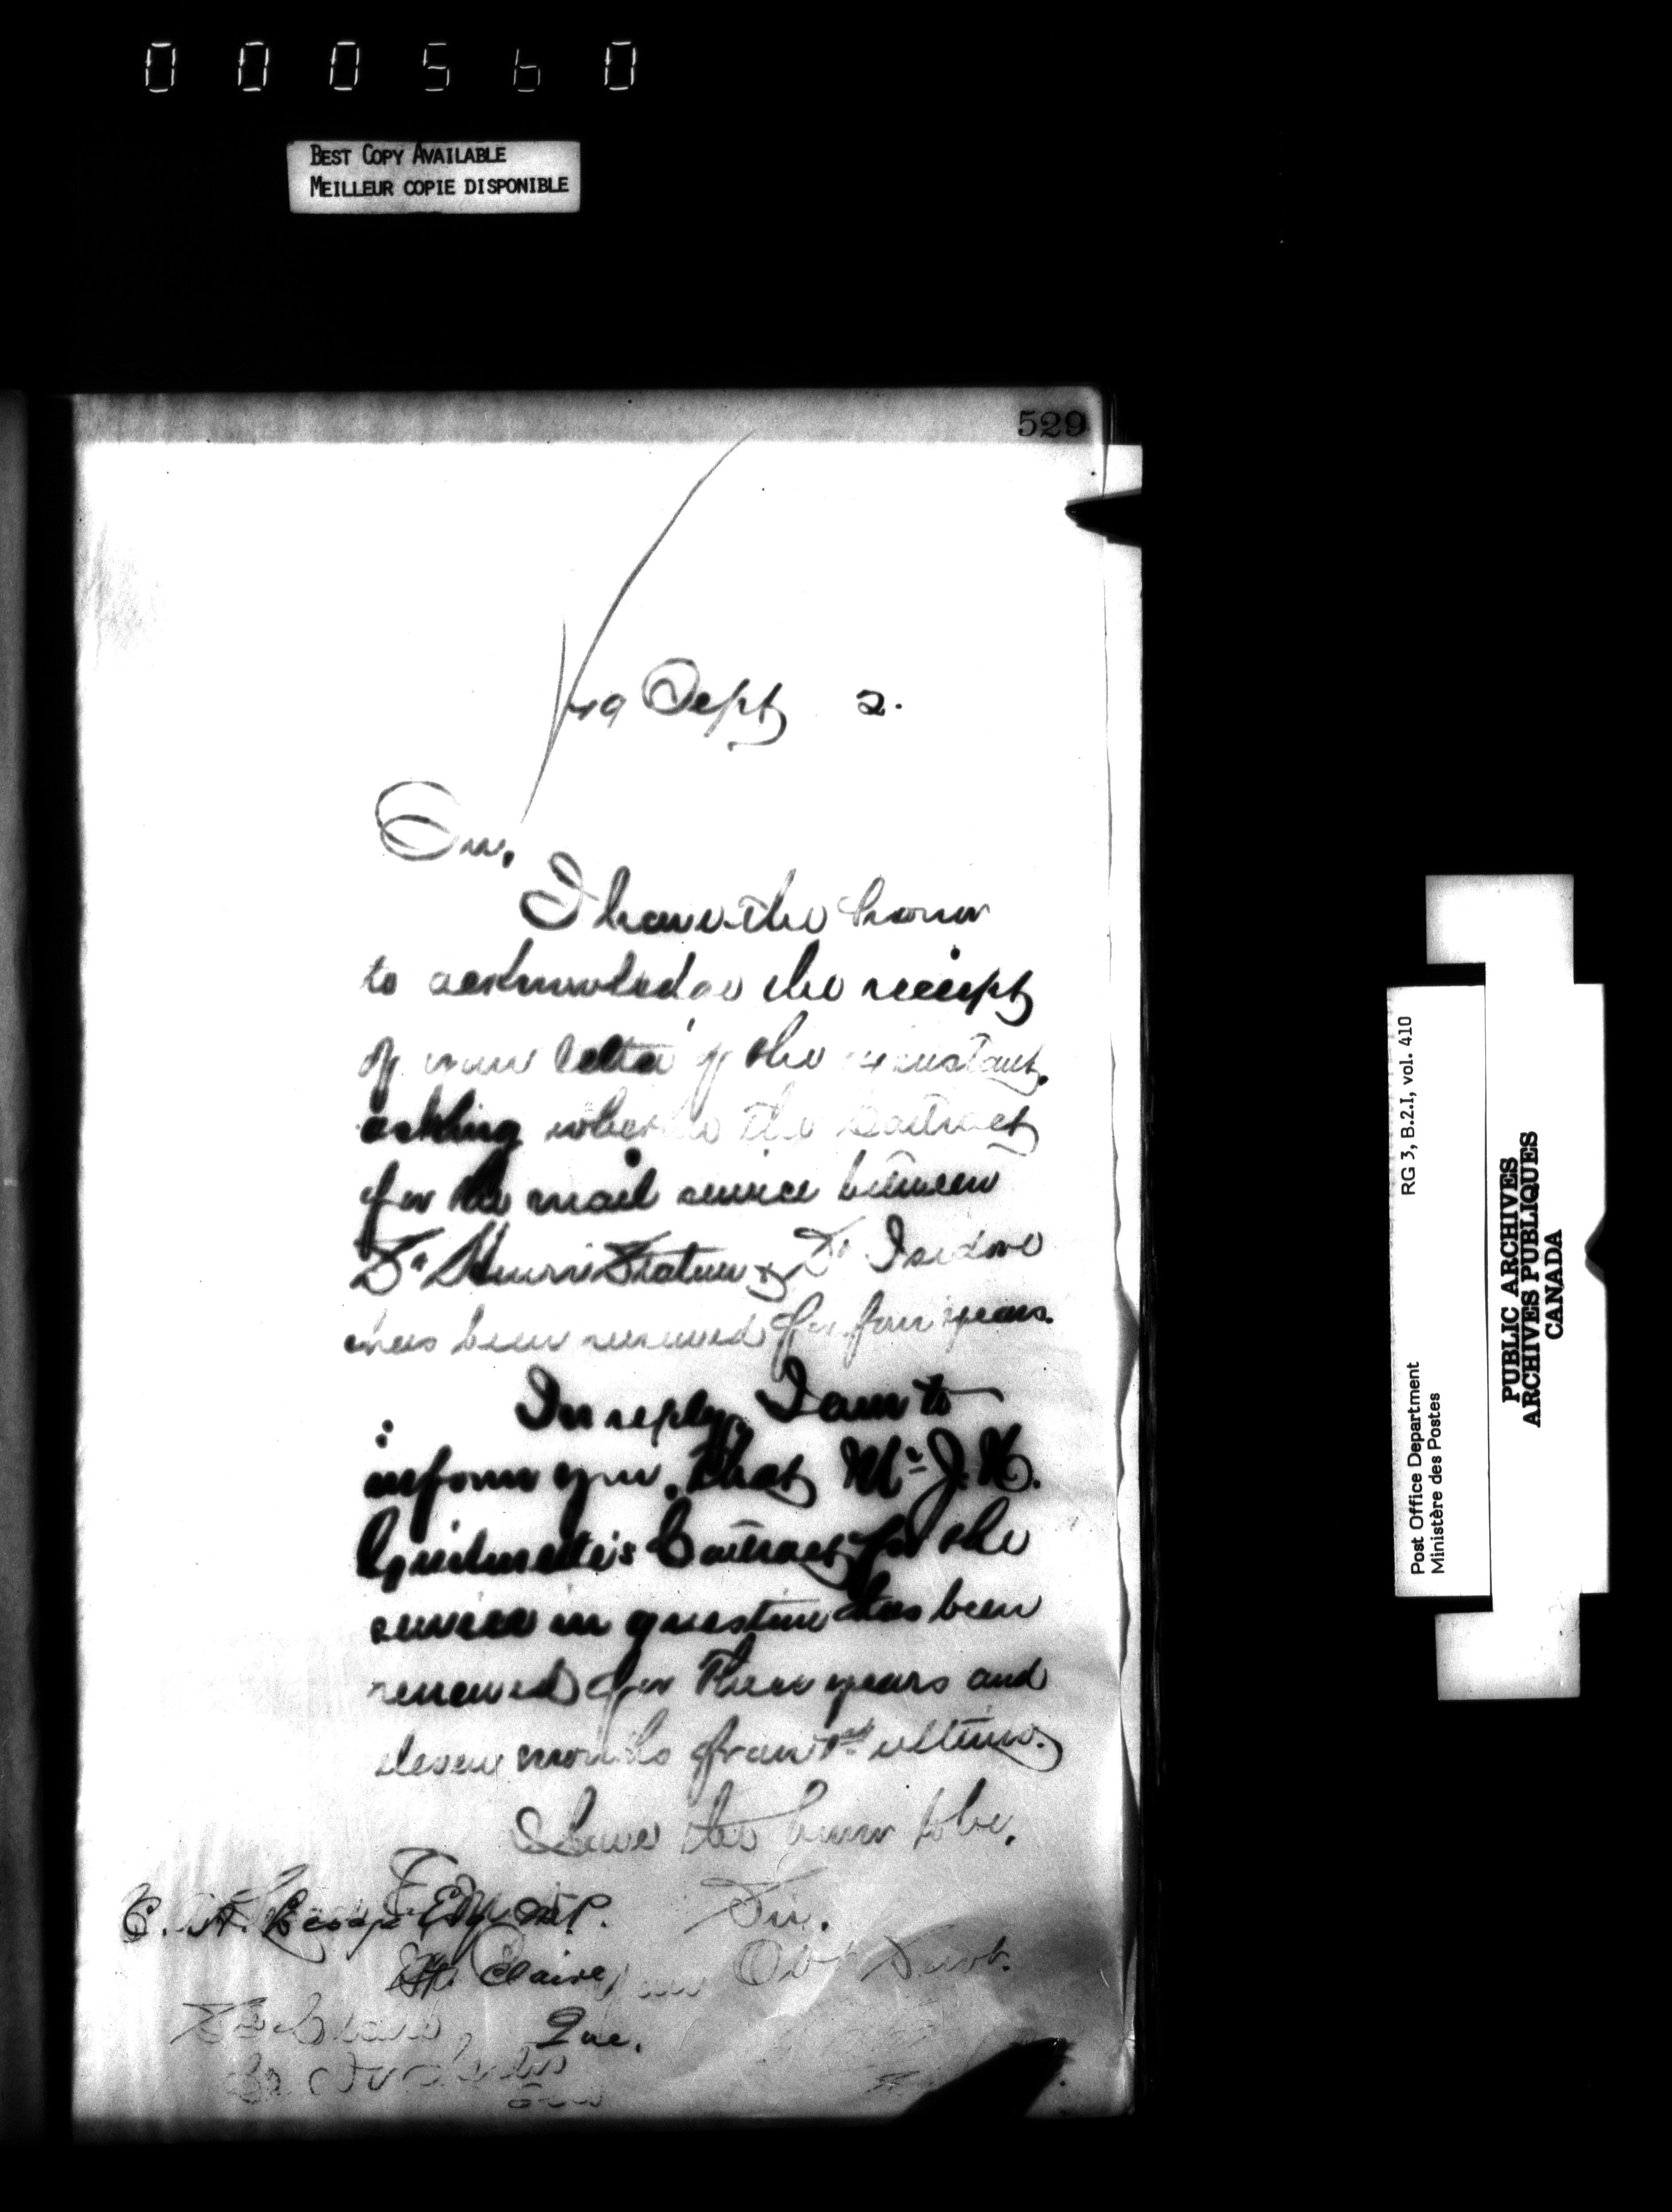 000560
BEST COPY AVAILABLE
MEILLEUR COPIE DISPONIBLE
529
Sept 2.
Sir,
I have the honor
to acknowledge the receipt
of your letter of the instant,
asking whether the Contract
for the mail service between
St Henri Station & St Isidore
has been renewed for four years.
In reply, I am to
inform you, that Mr J.
Contract for the
service in question has been
renewed for three years and
eleven months from 1st ultimo.
I have the honor to be,
Sir,
C. A. Lesage Esq M.P.
Obt Servt.
St Claire,
Que.
RG 3, B.2.I, vol. 410
Post Office Department
Ministère des Postes
PUBLIC ARCHIVES
ARCHIVES PUBLIQUES
CANADA